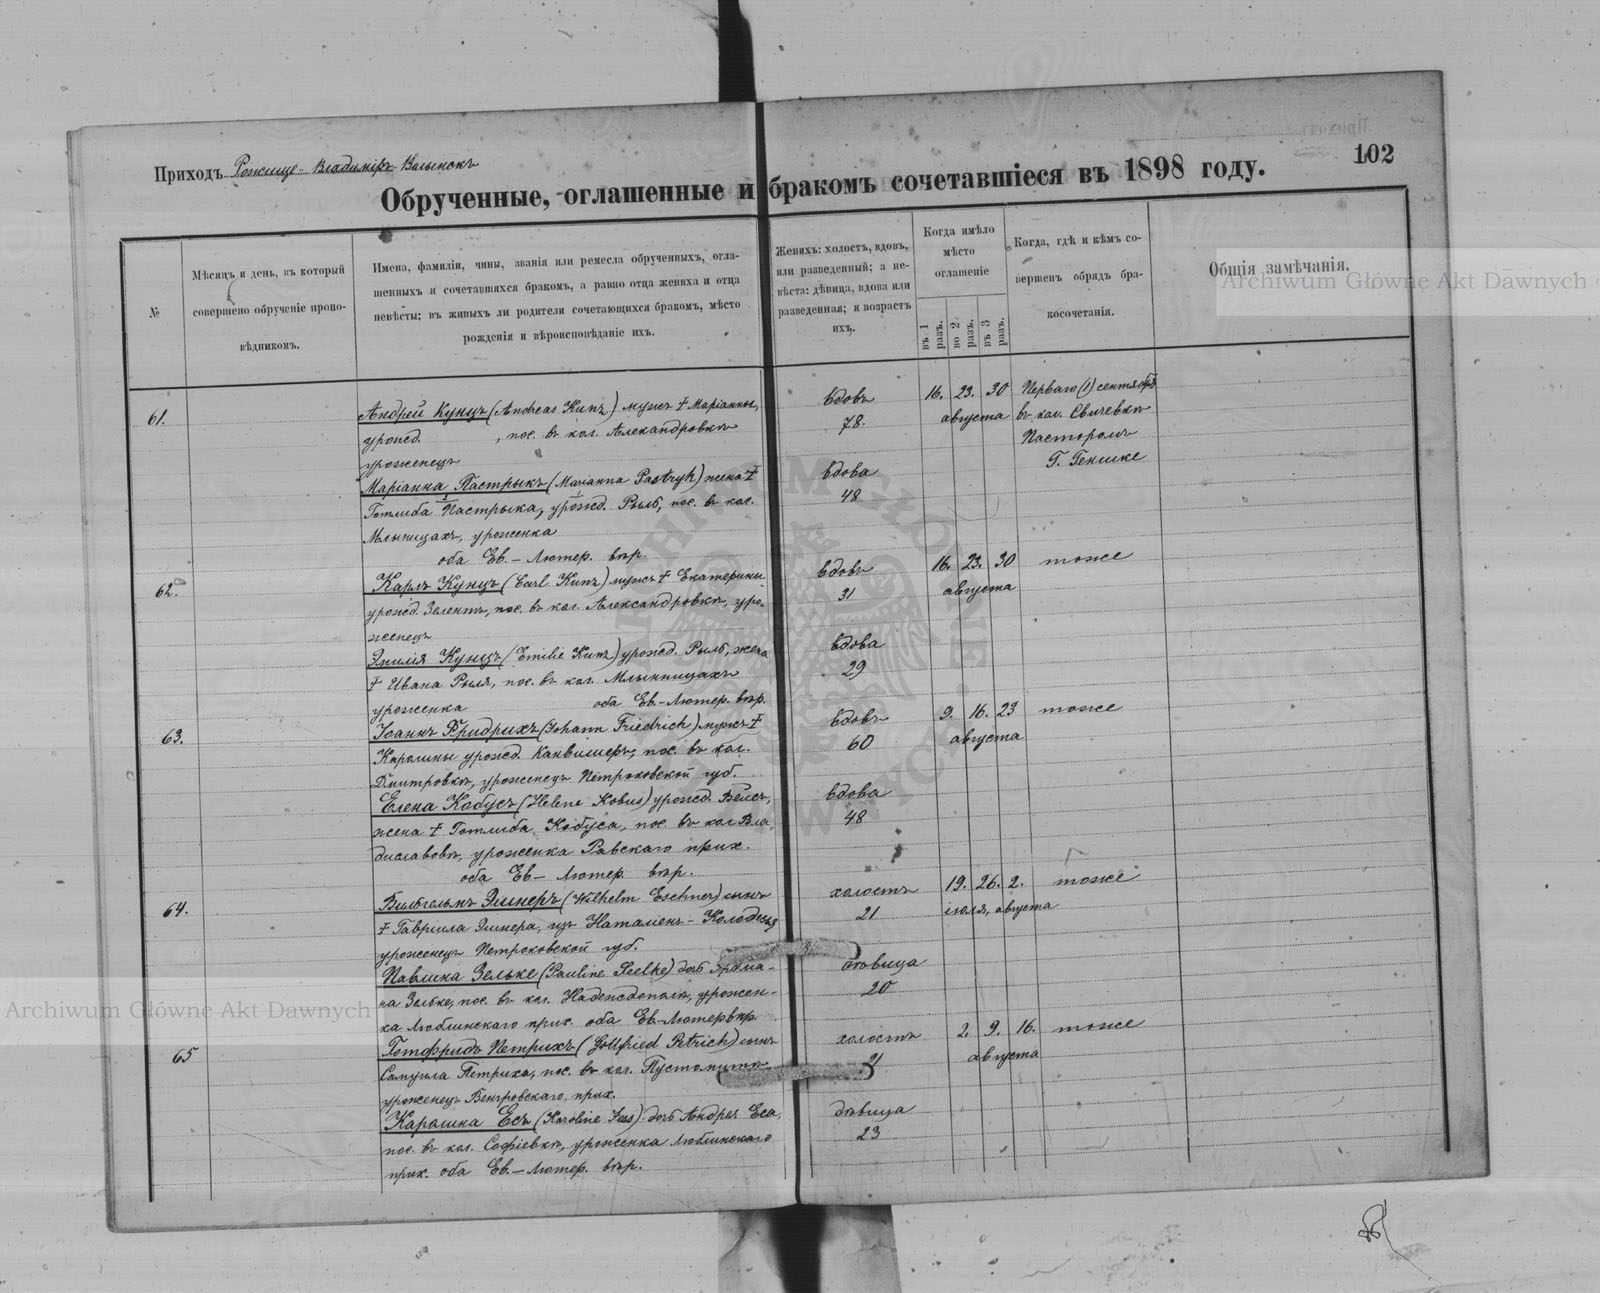 Приходъ Рожище-Владимиръ-Волынскъ
102
Обрученные, оглашенные и бракомъ сочетавшіеся въ 1898 году.
№
Мѣсяцъ и день, въ который
совершено обрученіе пропо-
вѣдникомъ.
Имена, фамиліи, чины, званія или ремесла обрученныхъ, огла-
шенныхъ и сочетавшихся бракомъ, а равно отца жениха и отца
невѣсты; въ живыхъ ли родители сочетающихся бракомъ, мѣсто
рожденія и вѣроисповѣданіе ихъ.
Женихъ: холостъ, вдовъ,
или разведенный; а не-
вѣста: дѣвица, вдова или
разведенная; и возрастъ
ихъ.
Когда имѣло
мѣсто
оглашеніе
въ 1 разъ.
во 2 разъ.
въ 3 разъ.
Когда, гдѣ и кѣмъ со-
вершенъ обрядъ бра-
косочетанія.
Общія замѣчанія.
Archiwum Główne Akt Dawnych
61.
Андрей Кунцъ (Andreas Kunz) мужъ † Маріанны,
урожд. , пос. въ кол. Александровкѣ
уроженецъ
Маріанна Пастрыкъ (Marianna Pastryk) жена †
Готлиба Пастрыка, урожд. Рыль, пос. въ кол.
Млыницахъ, уроженка
оба Ев.-Лютер. вѣр.
вдовъ
78.
вдова
48
16. 23. 30
августа
Перваго (1) сентября
въ кол. Свичевкѣ
Пасторомъ
Г. Генике
62.
Карлъ Кунцъ (Carl Kunz) мужъ † Екатерины
урожд. Зелентъ, пос. въ кол. Александровкѣ, уро-
женецъ
Эмилія Кунцъ (Emilie Kunz) урожд. Рыль, жена
† Ивана Рыля, пос. въ кол. Млынницахъ
уроженка оба Ев.-Лютер. вѣр.
вдовъ
31
вдова
29
16. 23. 30
августа
тоже
63.
Іоаннъ Фридрихъ (Johann Friedrich) мужъ †
Каролины урожд. , пос. въ кол.
Дмитровкѣ, уроженецъ Петроковской губ.
Елена Кобусъ (Helene Kobus) урожд. Вейсъ,
жена † Готлиба Кобуса, пос. въ кол. Вла-
диславовкѣ, уроженка Равскаго прих.
оба Ев-Лютер. вѣр.
вдовъ
60
вдова
48
9. 16. 23
августа
тоже
64.
Вильгельмъ Эшнеръ (Wilhelm Eschner) сынъ
† Гавріила Эшнера, изъ Наталіенъ-Колодезъ
уроженецъ Петроковской губ.
Павлина Зельке (Pauline Seelke) дочь Эрдма-
на Зельке, пос. въ кол. Надеждополѣ, урожен-
ка Люблинскаго прих. оба Ев-Лютер вѣр.
холостъ
21
дѣвица
20
19. 26. 2.
іюля, августа
тоже
65
Готфридъ Петрихъ (Gottfried Petrich) сынъ
Самуила Петриха, пос. въ кол. Пустомытѣ
уроженецъ Венгровскаго прих.
Каролина Есъ (Karoline Jess) дочь Андрея Еса,
пос. въ кол. Софіевкѣ, уроженка Люблинскаго
прих. оба Ев.-Лютер. вѣр.
холостъ
21
дѣвица
23
2. 9. 16.
августа
тоже
Archiwum Główne Akt Dawnych